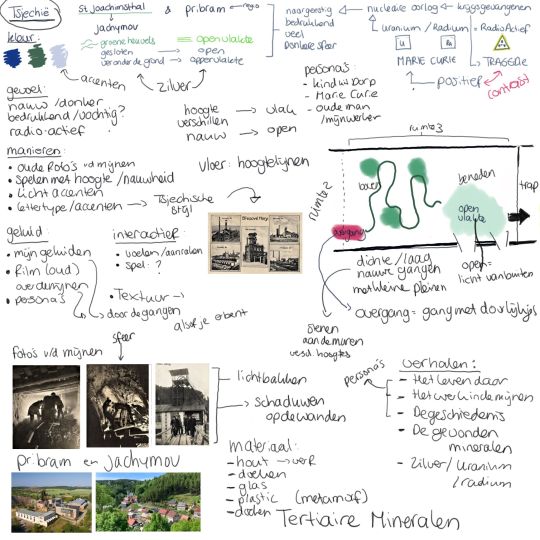 Tsjechië
kleur:
St Joachimsthal & pribram
↓
jachymov
groene heuvels open vlakte
gesloten → open
veranderde grond → oppervlakte
naargeestig
bedrukkend
veel
donkere sfeer
nucleaire oorlog ← krijgsgevangenen
uranium / Radium = RadioActief
U Ra
MARIE CURIE → TRAGEDIE
positief contrast
accenten
zilver
gevoel:
nauw /donker
bedrukkend /vochtig?
radio-actief
hoogte → vlak
verschillen
nauw → open
persona's
- kind uit Dorp
- Marie Curie
- oude man
/mijnwerker
manieren:
• oude foto's v/d mijnen
• spelen met hoogte /nauwheid
• licht accenten
• lettertype/accenten → Tsjechische
stijl
vloer: hoogtelijnen
ruimte 3
ruimte 2
boven
beneden
overgang
open
vlakte
trap
dichte /laag
nauwe gangen
met kleine pleinen
open=
licht van buiten
overgang = gang met doorkijkjes
stenen
aan de muren
versch. hoogtes
geluid
• mijn geluiden
• film (oud)
over de mijnen
• persona's
interactief
• voelen/aanraken
• spel ?
• Textuur →
door de gangen
alsof je er bent
sfeer
foto's v/d mijnen
lichtbakken
schaduwen
op de wanden
persona's
verhalen:
- Het leven daar
- Het werk in de mijnen
- De geschiedenis
- De gevonden
mineralen
- Zilver/ Uranium
/radium
pribram en jachymov
materiaal:
- hout → verf
- doeken
- glas
- plastic (metamorf)
- doeken
Tertiaire Mineralen